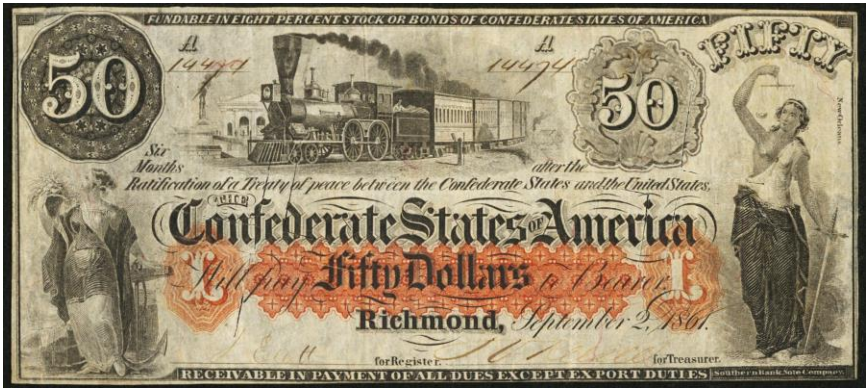 FUNDABLE IN EIGHT PER CENT STOCK OR BONDS OF CONFEDERATE STATES OF AMERICA
50
A
A
50
FIFTY
14474
New Orleans
Six
Months
after the
Ratification of a Treaty of peace between the Confederate States and the United States,
The
Confederate States of America
L Will pay Fifty Dollars to Bearer L
Richmond, September 2, 1861.
for Register.
for Treasurer.
RECEIVABLE IN PAYMENT OF ALL DUES EXCEPT EXPORT DUTIES
Southern Bank Note Company,